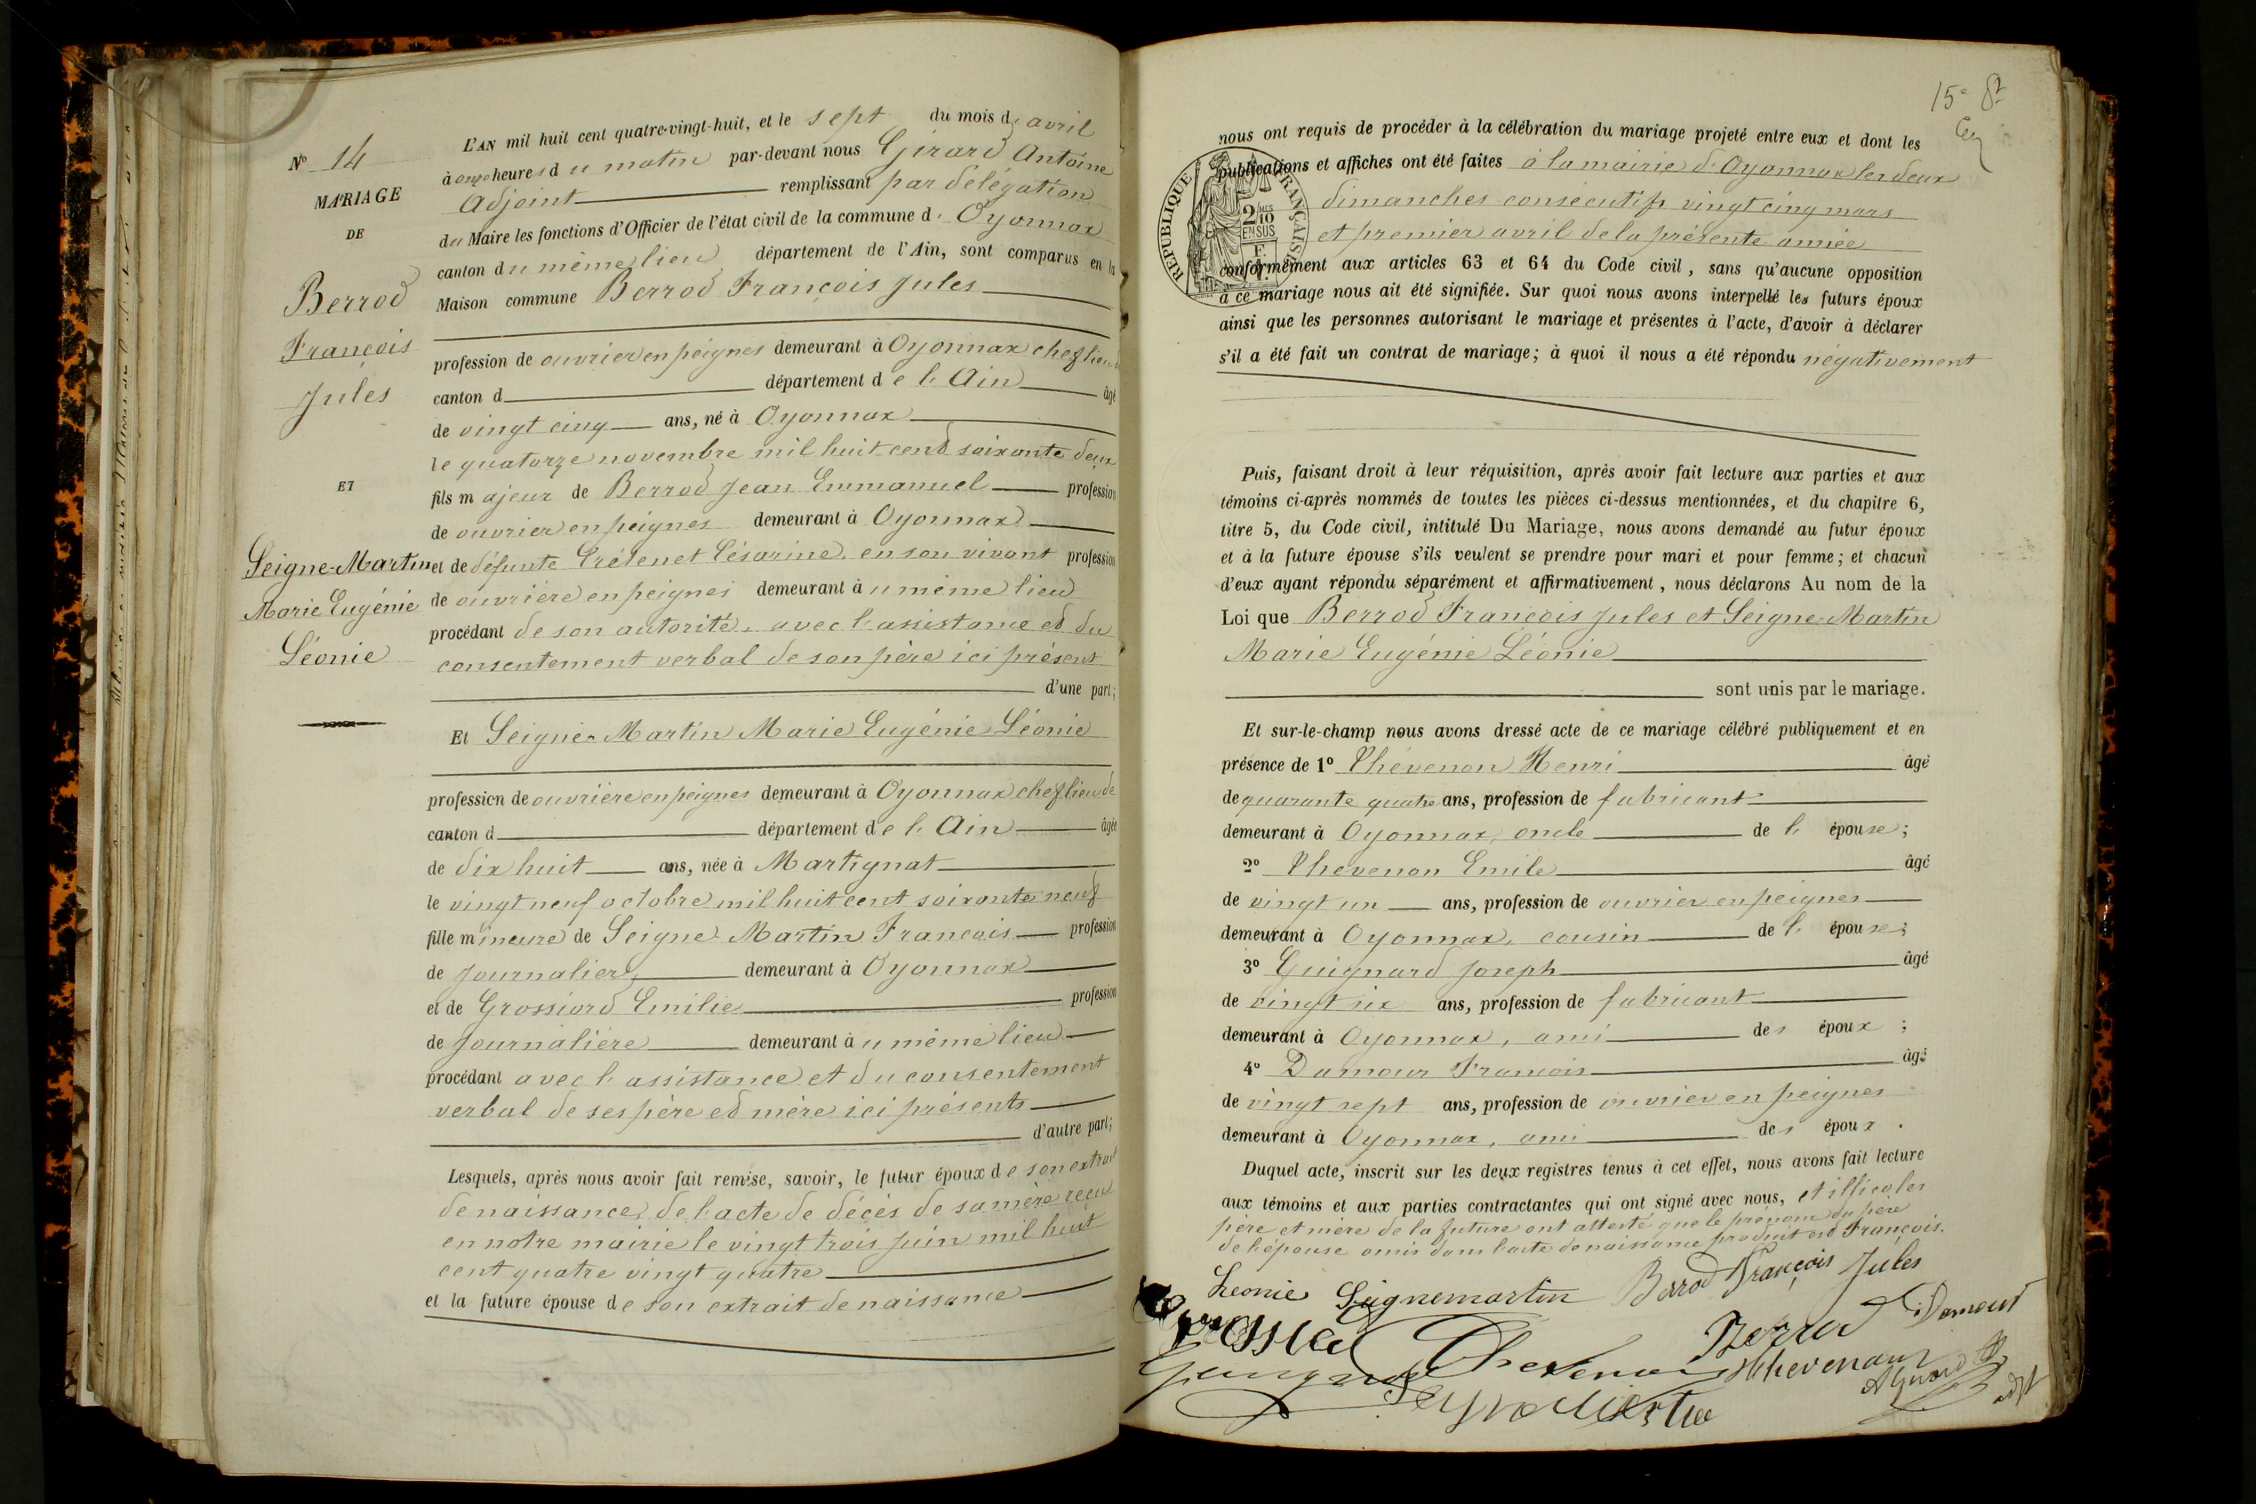 N° 14
MARIAGE
DE
Berrod
François
Jules
ET
Seigne-Martin
Marie Eugénie
Léonie
L'AN mil huit cent quatre-vingt-huit, et le sept du mois d'avril
à onze heures du matin par-devant nous Girard Antoine
Adjoint remplissant par délégation
du Maire les fonctions d'Officier de l'état civil de la commune d'Oyonnax
canton du même lieu département de l'Ain, sont comparus en la
Maison commune Berrod François Jules
profession de ouvrier en peignes demeurant à Oyonnax chef lieu de
canton d département de l'Ain âgé
de vingt cinq ans, né à Oyonnax
le quatorze novembre mil huit cent soixante deux
fils majeur de Berrod Jean Emmanuel profession
de ouvrier en peignes demeurant à Oyonnax
et de défunte Crétenet Césarine en son vivant profession
de ouvrière en peignes demeurant au même lieu
procédant de son autorité, avec l'assistance et du
consentement verbal de son père ici présent
d'une part;
Et Seigne-Martin Marie Eugénie Léonie
profession de ouvrière en peignes demeurant à Oyonnax chef lieu de
canton d département de l'Ain âgée
de dix huit ans, née à Martignat
le vingt neuf octobre mil huit cent soixante neuf
fille mineure de Seigne-Martin François profession
de journalier demeurant à Oyonnax
et de Grossiord Emilie profession
de journalière demeurant au même lieu
procédant avec l'assistance et du consentement
verbal de ses père et mère ici présents
d'autre part;
Lesquels, après nous avoir fait remise, savoir, le futur époux de son extrait
de naissance, de l'acte de décès de sa mère reçu
en notre mairie le vingt trois juin mil huit
cent quatre vingt quatre
et la future épouse de son extrait de naissance
15e
nous ont requis de procéder à la célébration du mariage projeté entre eux et dont les
publications et affiches ont été faites à la mairie d'Oyonnax les deux
dimanches consécutifs vingt cinq mars
et premier avril de la présente année
RÉPUBLIQUE FRANÇAISE
2/10
EN SUS
conformément aux articles 63 et 64 du Code civil, sans qu'aucune opposition
à ce mariage nous ait été signifiée. Sur quoi nous avons interpellé les futurs époux
ainsi que les personnes autorisant le mariage et présentes à l'acte, d'avoir à déclarer
s'il a été fait un contrat de mariage; à quoi il nous a été répondu négativement
Puis, faisant droit à leur réquisition, après avoir fait lecture aux parties et aux
témoins ci-après nommés de toutes les pièces ci-dessus mentionnées, et du chapitre 6,
titre 5, du Code civil, intitulé Du Mariage, nous avons demandé au futur époux
et à la future épouse s'ils veulent se prendre pour mari et pour femme; et chacun
d'eux ayant répondu séparément et affirmativement, nous déclarons Au nom de la
Loi que Berrod François Jules et Seigne-Martin
Marie Eugénie Léonie
sont unis par le mariage.
Et sur-le-champ nous avons dressé acte de ce mariage célébré publiquement et en
présence de 1° Thévenon Henri âgé
de quarante quatre ans, profession de fabricant
demeurant à Oyonnax, oncle de l'épouse;
2° Thevenon Emile âgé
de vingt un ans, profession de ouvrier en peignes
demeurant à Oyonnax, cousin de l'épouse;
3° Guignard Joseph âgé
de vingt six ans, profession de fabricant
demeurant à Oyonnax, ami des époux;
4° Damour François âgé
de vingt sept ans, profession de ouvrier en peignes
demeurant à Oyonnax, ami des époux.
Duquel acte, inscrit sur les deux registres tenus à cet effet, nous avons fait lecture
aux témoins et aux parties contractantes qui ont signé avec nous, et illico les
père et mère de la future ont attesté que le prénom du père
de l'épouse omis dans l'acte de naissance produit est François.
Léonie Seignemartin Berrod François Jules
Berrod Damour
Thevenon Thevenon
AGirard adjt